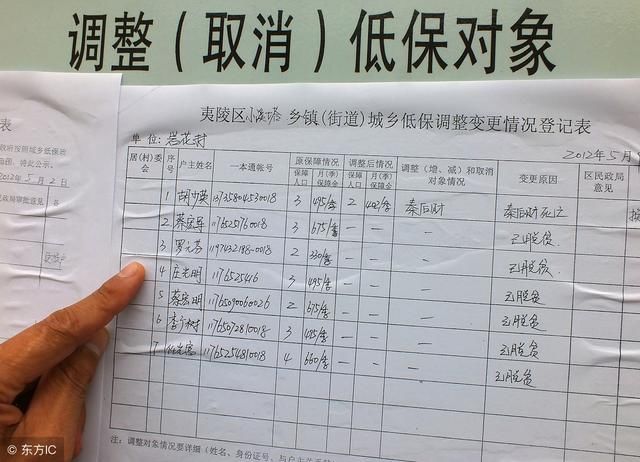 调整（取消）低保对象
表
政府按照城乡低保政
2012年5月2日
民政局审批意见
夷陵区小溪塔 乡镇(街道)城乡低保调整变更情况登记表
单位:岩花村
2012年5月
居(村)委会 序号 户主姓名 一本通帐号 原保障情况 调整后情况 调整（增、减）和取消对象情况 变更原因 区民政局意见
保障人口 月(季)保障金 保障人口 月(季)保障金
1 3 495/季 2 402/季 秦后财 秦后财死亡
2 蔡宏寿 3 675/季 — — — 已脱贫
3 罗元芬 2 330/季 — — — 已脱贫
4 庄光明 1176525416 3 495/季 — — — 已脱贫
5 蔡宏明 2 675/季 — — — 已脱贫
6 3 495/季 — — — 已脱贫
7 4 660/季 — — — 已脱贫
注：调整对象情况要详细（姓名、身份证号、与户主关系
© 东方IC